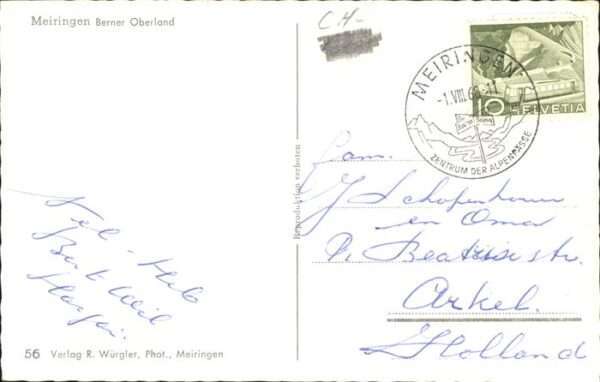 Meiringen Berner Oberland
C.H-
MEIRINGEN
-1.VIII.60.-11
ZENTRUM DER ALPENPÄSSE
10 HELVETIA
Reproduktion verboten
Fam.
en Oma
P. Beatrixstr.
Arkel.
Holland
Fel-
56 Verlag R. Würgler, Phot., Meiringen